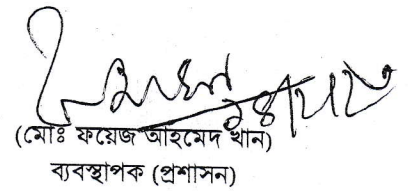 (মোঃ ফয়েজ আহমেদ খান)
ব্যবস্থাপক (প্রশাসন)